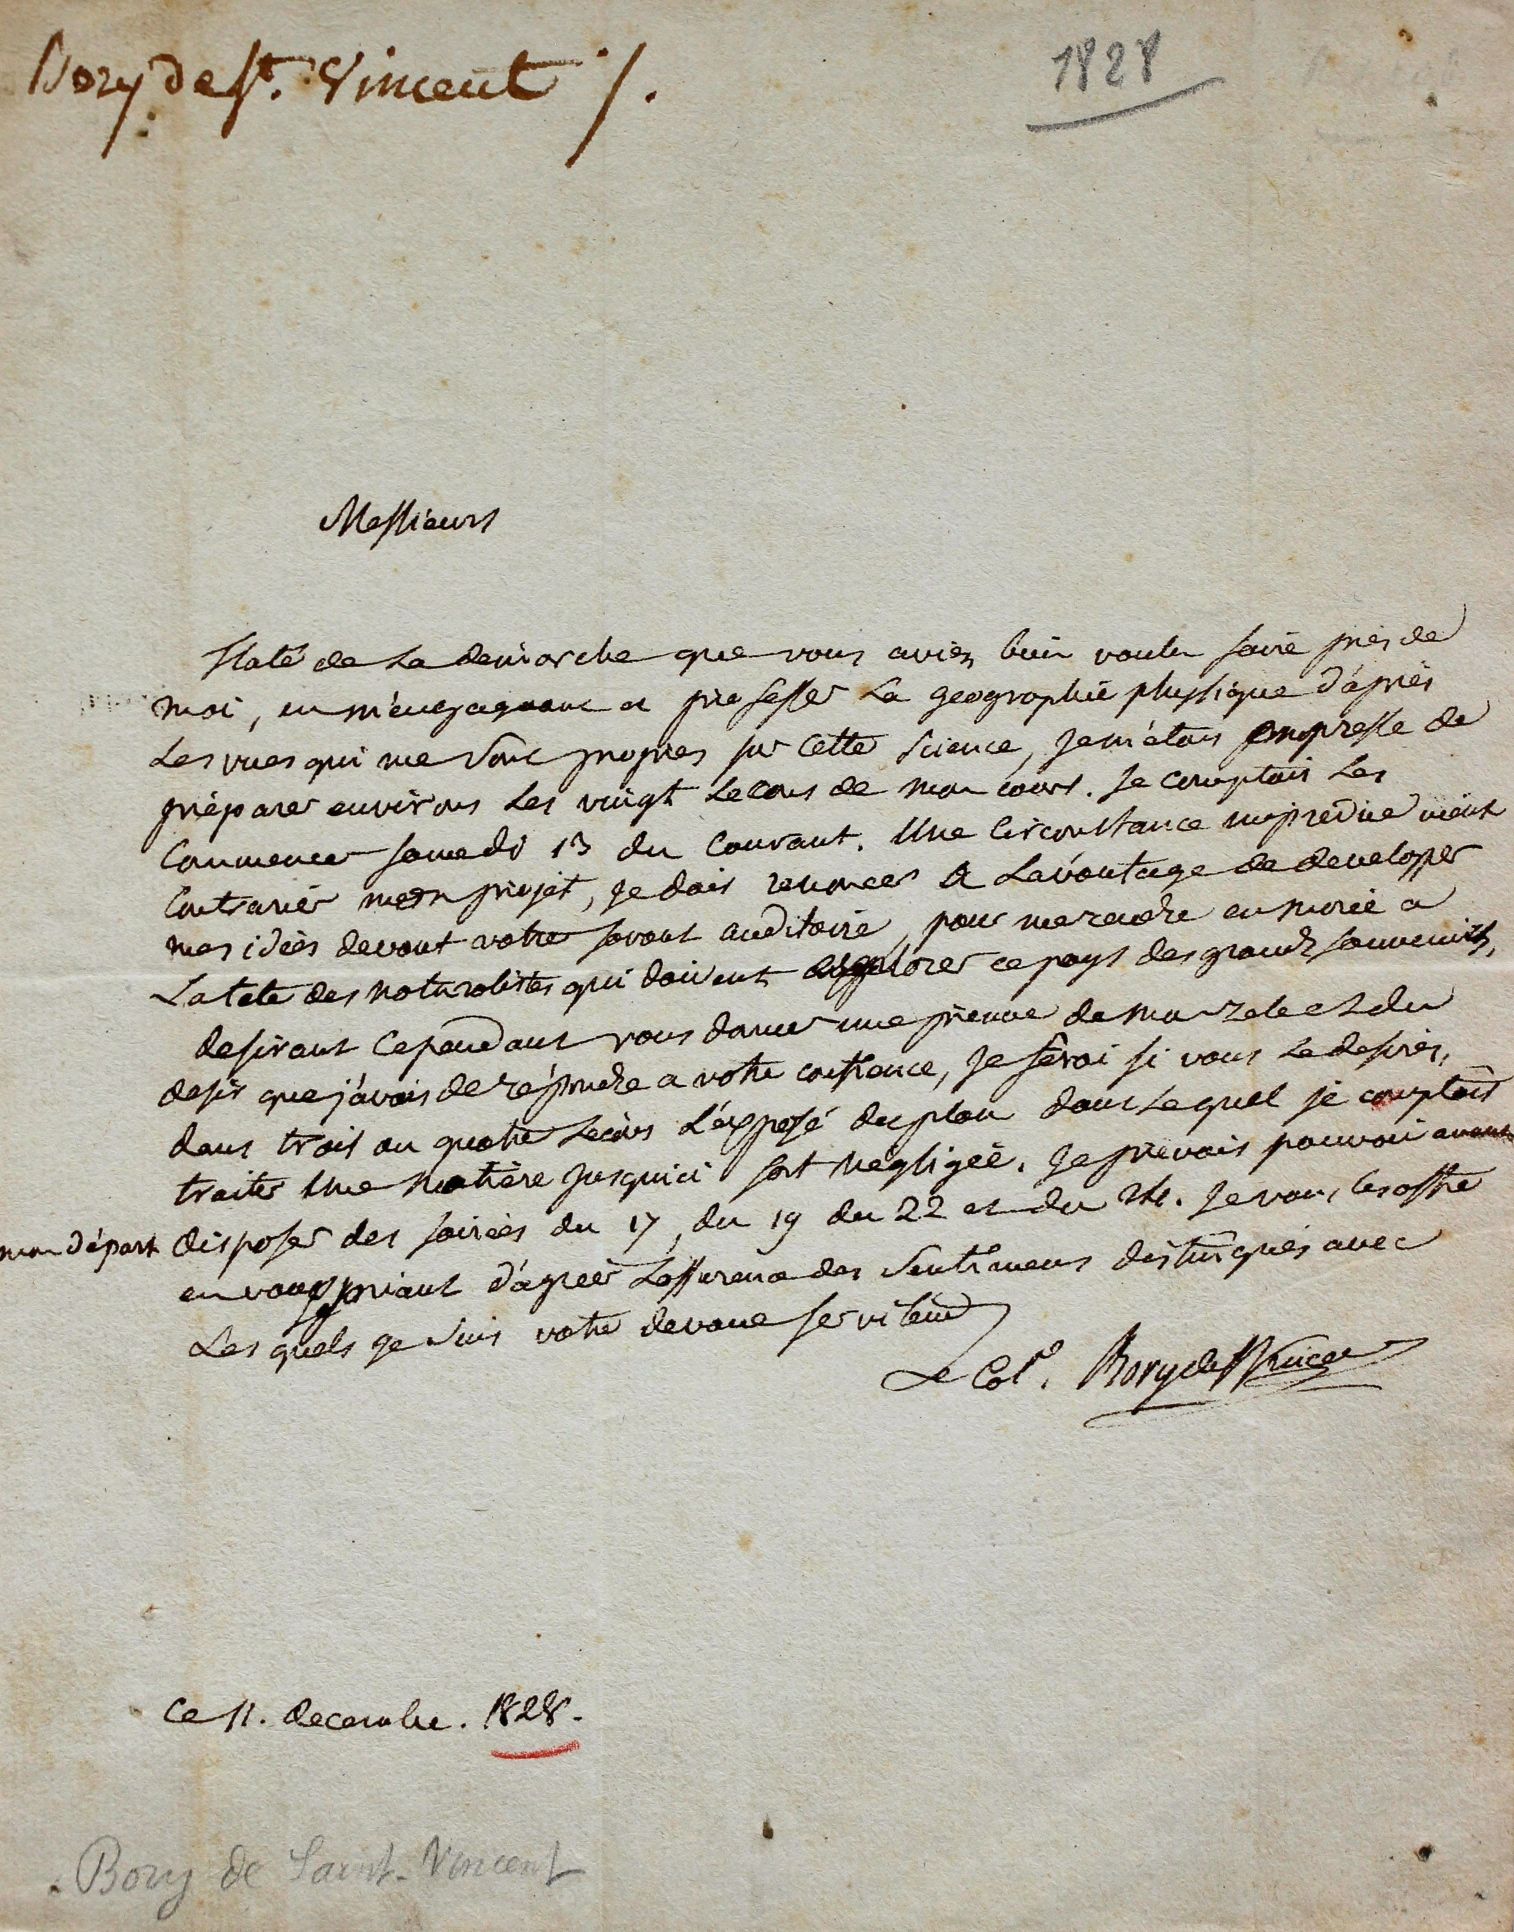 Bory de St. Vincent /.
1828
Messieurs
flaté de la demarche que vous aviez bien voulu faire près de
moi, en m'engageant a professer la geographie physique d'après
les vues qui me sont propres sur cette science, je m'étais empressé de
préparer environs les vingt lecons de mon cours. Je comptais les
commencer samedi 13 du courant. Une circonstance imprevue vient
contrarier mon projet, je dois renoncer a l'avantage de developper
mes idées devant votre savant auditoire, pour me rendre en morée a
la tete des naturalistes qui doivent explorer ce pays des grands souvenirs,
desirant cependant vous donner une preuve de mon zele et du
desir que j'avais de répondre a votre confiance, je ferai si vous le desirez,
dans trois ou quatre lecons l'exposé du plan dans lequel je comptais
traiter une matière jusqu'ici fort négligée. Je prevois pouvoir avant
mon départ disposer des soirées du 17, du 19 du 22 et du 24. Je vous les offre
en vous priant d'agreer l'assurence des sentimens distingués avec
les quels je suis votre devoué serviteur
Le Col. Bory de St Vincent
Ce 11. decembre. 1828.
Bory de Saint-Vincent